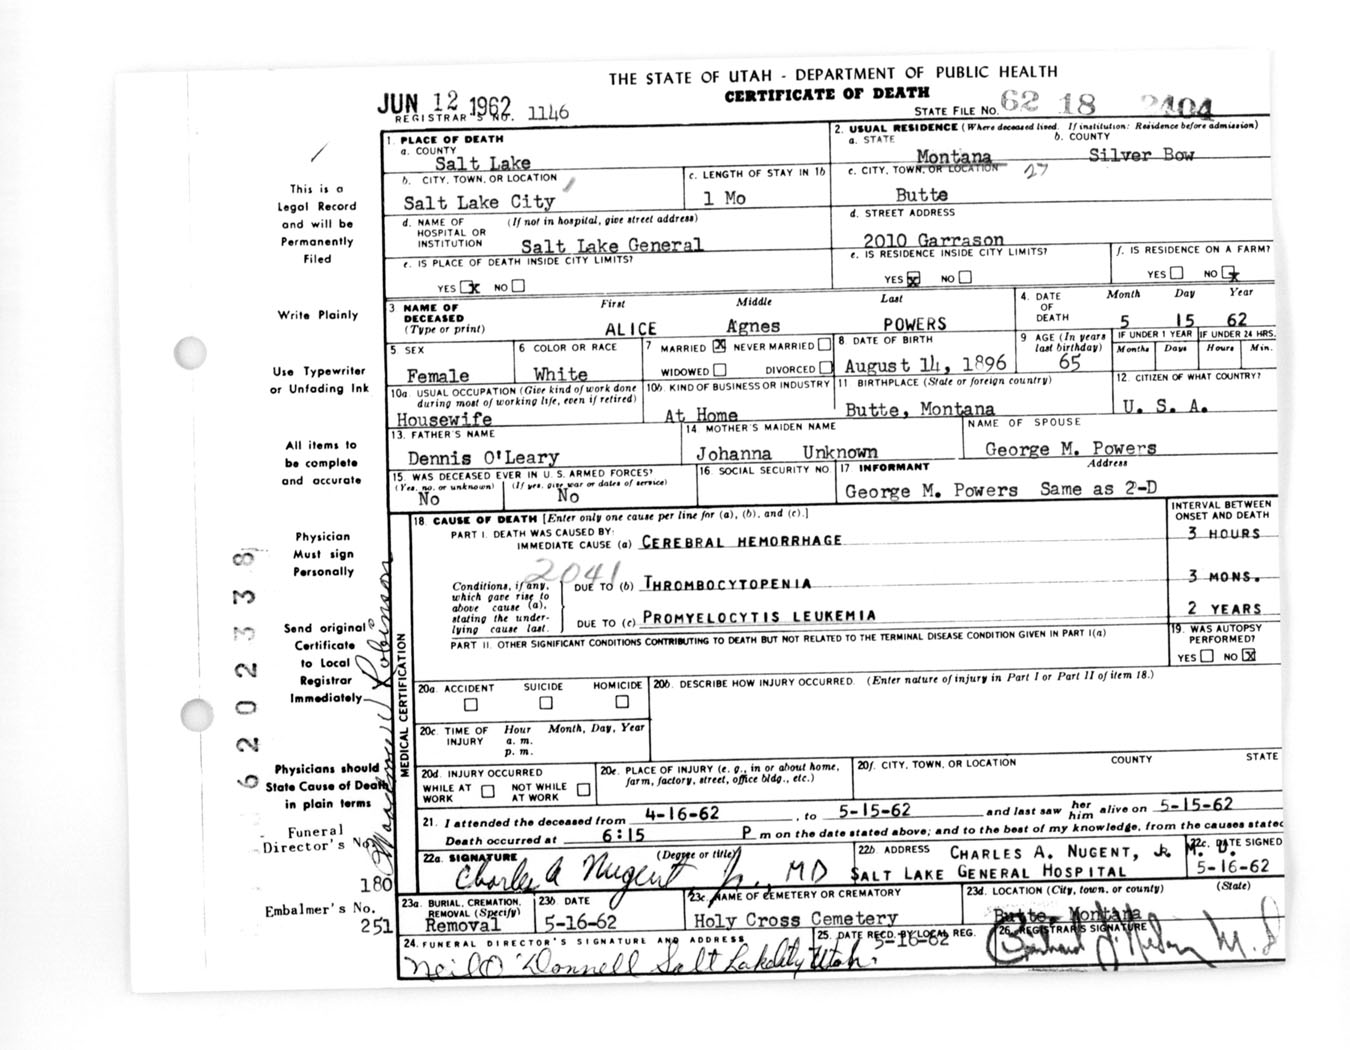 THE STATE OF UTAH - DEPARTMENT OF PUBLIC HEALTH
CERTIFICATE OF DEATH
JUN 12 1962
REGISTRAR'S NO. 1146
STATE FILE NO. 62 18 2404
1. PLACE OF DEATH
a. COUNTY
Salt Lake
2. USUAL RESIDENCE (Where deceased lived. If institution: Residence before admission)
a. STATE b. COUNTY
Montana Silver Bow
b. CITY, TOWN, OR LOCATION
Salt Lake City
c. LENGTH OF STAY IN 1b
1 Mo
c. CITY, TOWN, OR LOCATION 27
Butte
d. NAME OF HOSPITAL OR INSTITUTION (If not in hospital, give street address)
Salt Lake General
d. STREET ADDRESS
2010 Garrason
e. IS PLACE OF DEATH INSIDE CITY LIMITS?
YES x NO
e. IS RESIDENCE INSIDE CITY LIMITS?
YES x NO
f. IS RESIDENCE ON A FARM?
YES NO x
3 NAME OF DECEASED (Type or print)
First Middle Last
ALICE Agnes POWERS
4. DATE OF DEATH
Month Day Year
5 15 62
5 SEX
Female
6 COLOR OR RACE
White
7 MARRIED x NEVER MARRIED
WIDOWED DIVORCED
8 DATE OF BIRTH
August 14, 1896
9 AGE (In years last birthday)
65
IF UNDER 1 YEAR IF UNDER 24 HRS.
Months Days Hours Min.
10a. USUAL OCCUPATION (Give kind of work done during most of working life, even if retired)
Housewife
10b. KIND OF BUSINESS OR INDUSTRY
At Home
11 BIRTHPLACE (State or foreign country)
Butte, Montana
12. CITIZEN OF WHAT COUNTRY?
U. S. A.
13. FATHER'S NAME
Dennis O'Leary
14 MOTHER'S MAIDEN NAME
Johanna Unknown
NAME OF SPOUSE
George M. Powers
15. WAS DECEASED EVER IN U. S. ARMED FORCES?
(Yes, no, or unknown) (If yes, give war or dates of service)
No No
16. SOCIAL SECURITY NO.
17. INFORMANT Address
George M. Powers Same as 2-D
18. CAUSE OF DEATH [Enter only one cause per line for (a), (b), and (c).]
INTERVAL BETWEEN ONSET AND DEATH
PART I. DEATH WAS CAUSED BY:
IMMEDIATE CAUSE (a) CEREBRAL HEMORRHAGE 3 HOURS
2041
Conditions, if any, which gave rise to above cause (a), stating the underlying cause last.
DUE TO (b) THROMBOCYTOPENIA 3 MONS.
DUE TO (c) PROMYELOCYTIS LEUKEMIA 2 YEARS
PART II. OTHER SIGNIFICANT CONDITIONS CONTRIBUTING TO DEATH BUT NOT RELATED TO THE TERMINAL DISEASE CONDITION GIVEN IN PART I(a)
19. WAS AUTOPSY PERFORMED?
YES NO x
20a. ACCIDENT SUICIDE HOMICIDE
20b. DESCRIBE HOW INJURY OCCURRED. (Enter nature of injury in Part I or Part II of item 18.)
20c. TIME OF INJURY Hour Month, Day, Year
a. m.
p. m.
20d. INJURY OCCURRED
WHILE AT WORK NOT WHILE AT WORK
20e. PLACE OF INJURY (e. g., in or about home, farm, factory, street, office bldg., etc.)
20f. CITY, TOWN, OR LOCATION COUNTY STATE
21. I attended the deceased from 4-16-62, to 5-15-62 and last saw her him alive on 5-15-62
Death occurred at 6:15 P m on the date stated above; and to the best of my knowledge, from the causes stated
22a. SIGNATURE (Degree or title)
Charles A Nugent Jr., MD
22b. ADDRESS CHARLES A. NUGENT, JR. M. D.
SALT LAKE GENERAL HOSPITAL
22c. DATE SIGNED
5-16-62
23a. BURIAL, CREMATION, REMOVAL (Specify)
Removal
23b DATE
5-16-62
23c. NAME OF CEMETERY OR CREMATORY
Holy Cross Cemetery
23d. LOCATION (City, town, or county) (State)
Butte, Montana
24. FUNERAL DIRECTOR'S SIGNATURE AND ADDRESS
Neil O'Donnell Salt Lake City Utah.
25. DATE RECD. BY LOCAL REG.
5-16-62
26. REGISTRAR'S SIGNATURE
MEDICAL CERTIFICATION
This is a
Legal Record
and will be
Permanently
Filed
Write Plainly
Use Typewriter
or Unfading Ink
All items to
be complete
and accurate
Physician
Must sign
Personally
Send original
Certificate
to Local
Registrar
Immediately
Physicians should
State Cause of Death
in plain terms
Funeral
Director's No.
180
Embalmer's No.
251
Robinson
6202338